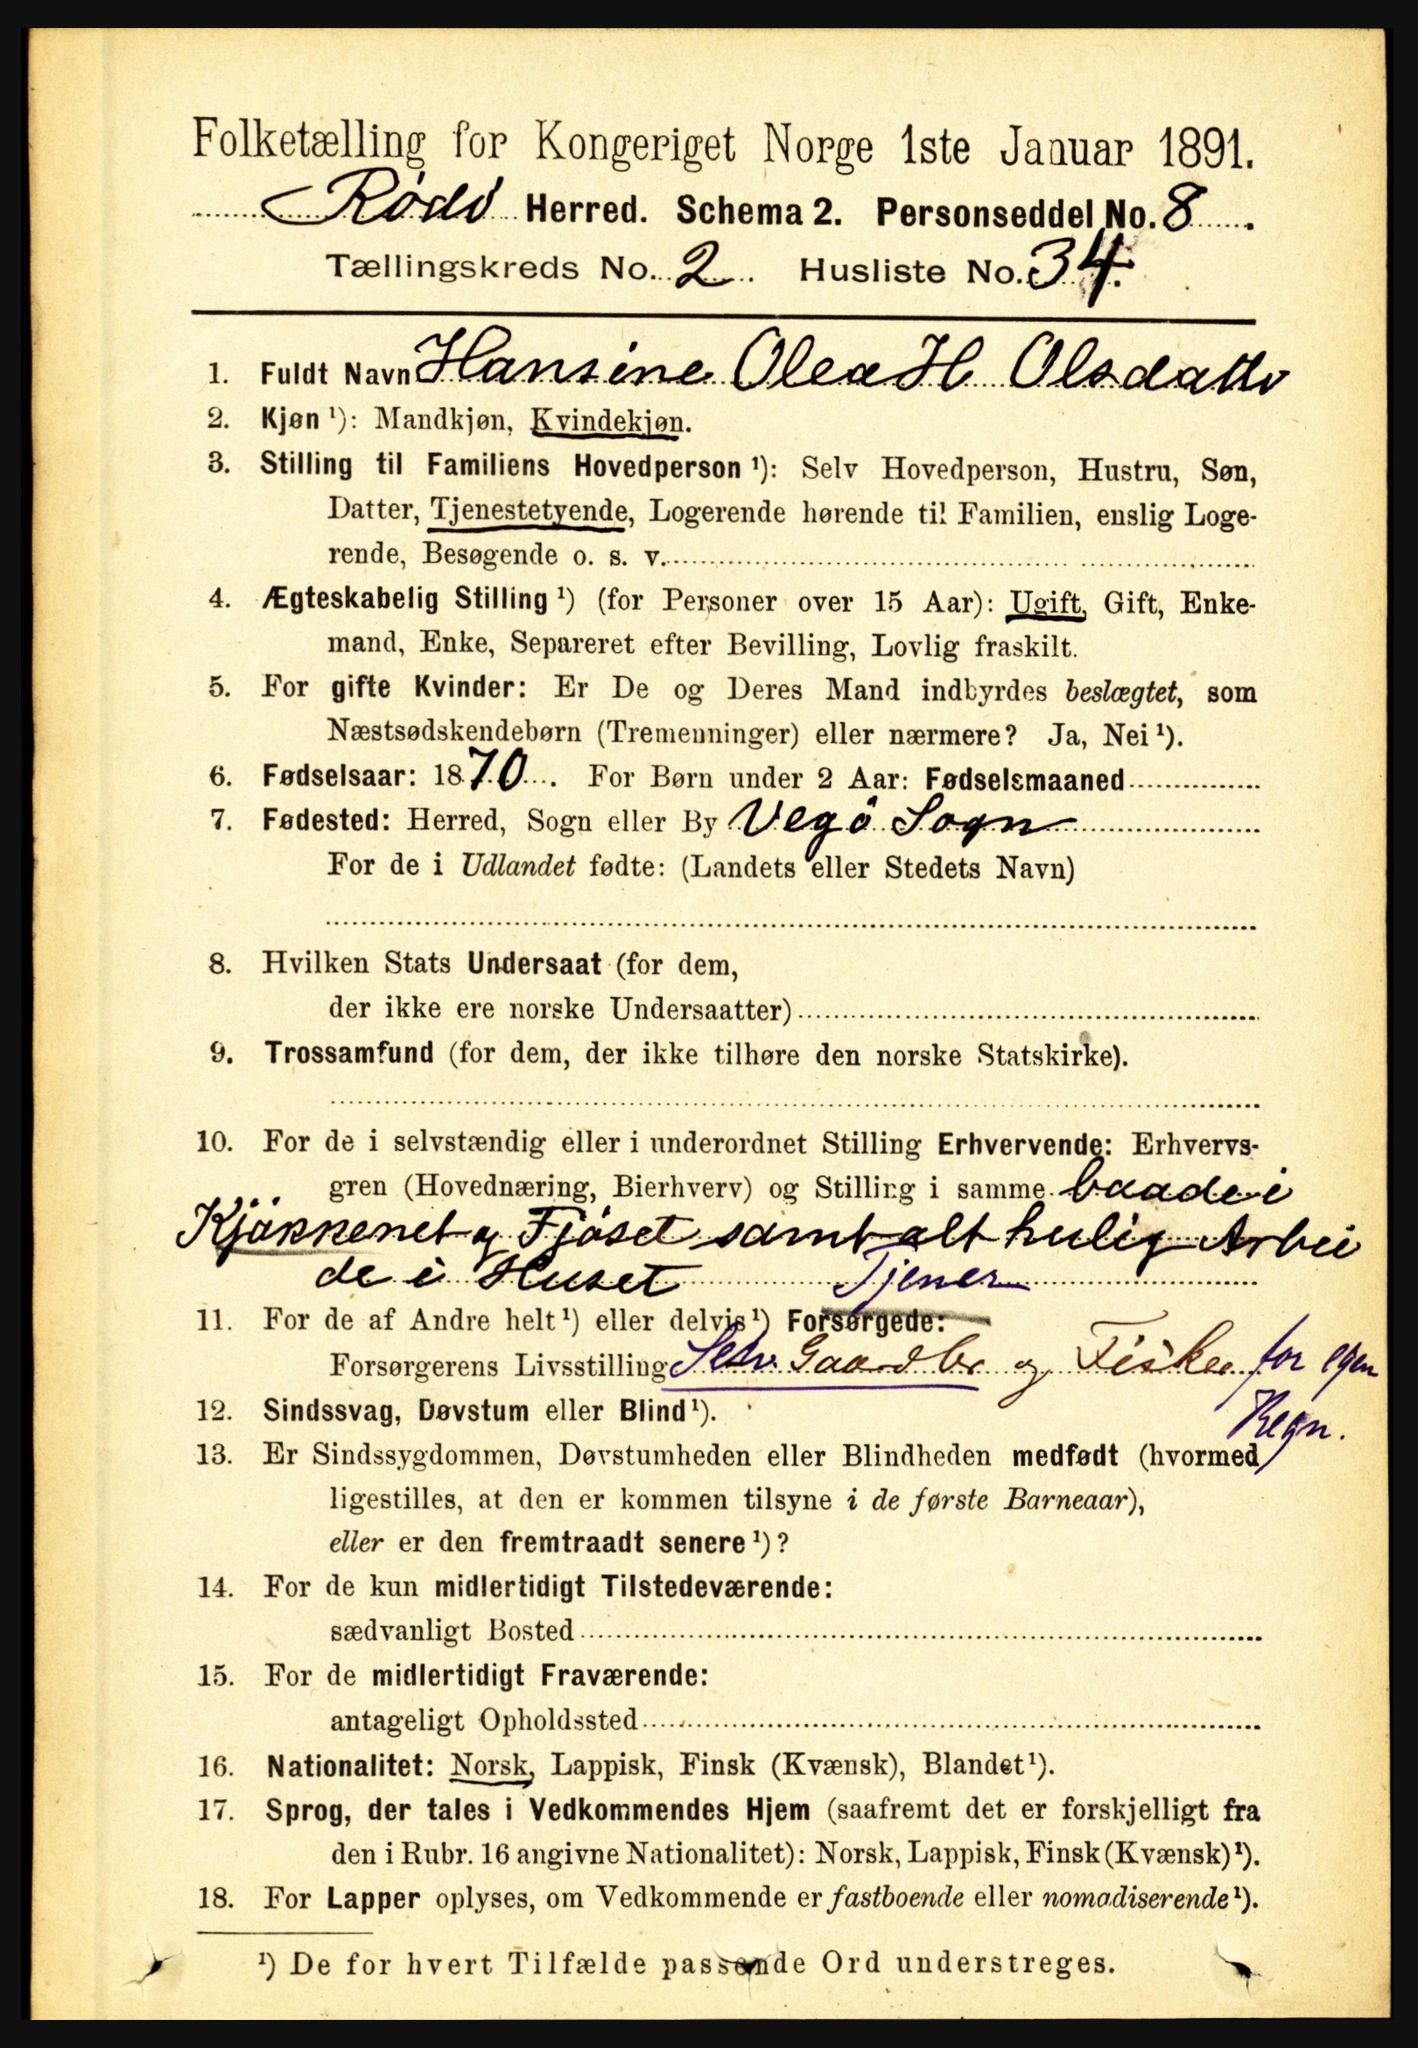 Folketælling for Kongeriget Norge 1ste Januar 1891.
Rødø Herred. Schema 2. Personseddel No. 8.
Tællingskreds No. 2. Husliste No. 34.
1. Fuldt Navn Hansine Olea H Olsdatter
2. Kjøn ¹): Mandkjøn, Kvindekjøn.
3. Stilling til Familiens Hovedperson ¹): Selv Hovedperson, Hustru, Søn,
Datter, Tjenestetyende, Logerende hørende til Familien, enslig Loge-
rende, Besøgende o. s. v.
4. Ægteskabelig Stilling ¹) (for Personer over 15 Aar): Ugift, Gift, Enke-
mand, Enke, Separeret efter Bevilling, Lovlig fraskilt.
5. For gifte Kvinder: Er De og Deres Mand indbyrdes beslægtet, som
Næstsødskendebørn (Tremenninger) eller nærmere? Ja, Nei ¹).
6. Fødselsaar: 1870. For Børn under 2 Aar: Fødselsmaaned
7. Fødested: Herred, Sogn eller By Vegø Sogn
For de i Udlandet fødte: (Landets eller Stedets Navn)
8. Hvilken Stats Undersaat (for dem,
der ikke ere norske Undersaatter)
9. Trossamfund (for dem, der ikke tilhøre den norske Statskirke).
10. For de i selvstændig eller i underordnet Stilling Erhvervende: Erhvervs-
gren (Hovednæring, Bierhverv) og Stilling i samme baade i
Kjøkkenet og Fjøset samt alt huslig Arbei
de i Huset Tjener
11. For de af Andre helt ¹) eller delvis ¹) Forsørgede:
Forsørgerens Livsstilling Selv. Gaardbr og Fisker for egen
Regn.
12. Sindssvag, Døvstum eller Blind ¹).
13. Er Sindssygdommen, Døvstumheden eller Blindheden medfødt (hvormed
ligestilles, at den er kommen tilsyne i de første Barneaar),
eller er den fremtraadt senere ¹)?
14. For de kun midlertidigt Tilstedeværende:
sædvanligt Bosted
15. For de midlertidigt Fraværende:
antageligt Opholdssted
16. Nationalitet: Norsk, Lappisk, Finsk (Kvænsk), Blandet ¹).
17. Sprog, der tales i Vedkommendes Hjem (saafremt det er forskjelligt fra
den i Rubr. 16 angivne Nationalitet): Norsk, Lappisk, Finsk (Kvænsk) ¹).
18. For Lapper oplyses, om Vedkommende er fastboende eller nomadiserende ¹).
¹) De for hvert Tilfælde passende Ord understreges.